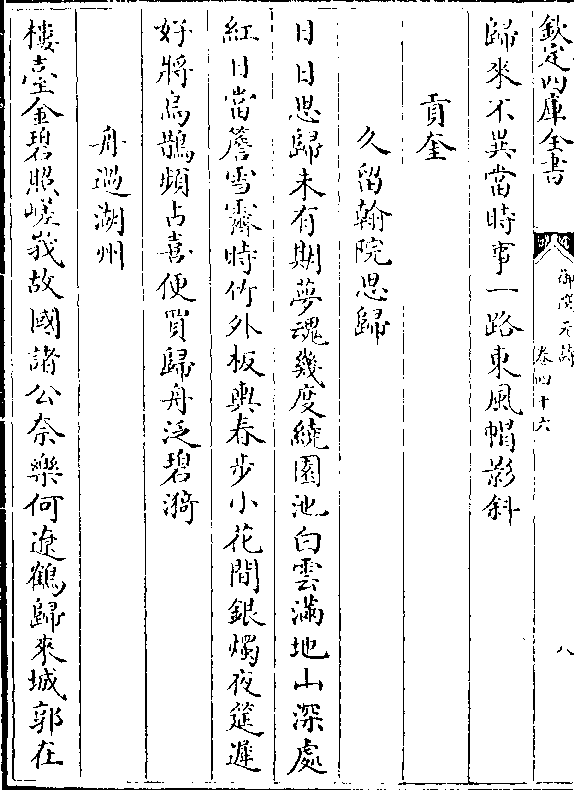 欽定四庫全書
御選元詩
卷四十六
八
歸來不異當時事一路東風帽影斜
貢奎
久留翰院思歸
日日思歸未有期夢魂幾度繞園池白雲滿地山深處
紅日當簷雪霽時竹外板輿春步小花間銀燭夜筵遲
好將烏鵲頻占喜便買歸舟泛碧漪
舟過湖州
樓臺金碧照嵯峩故國諸公奈樂何遼鶴歸來城郭在